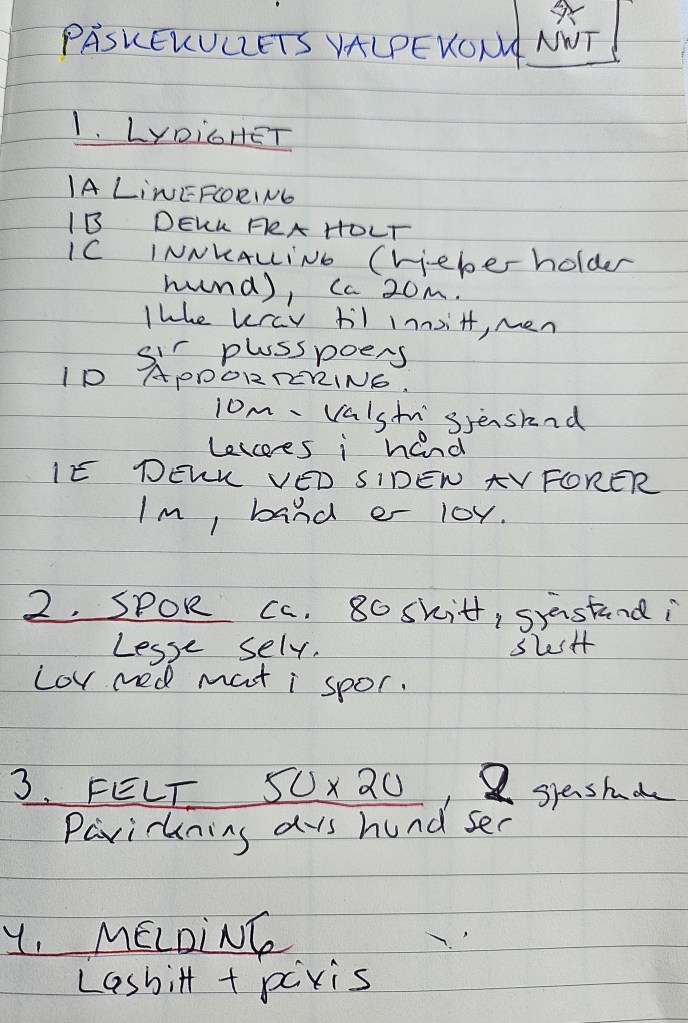 PÅSKEKULLETS VALPEKONK NWT
1. LYDIGHET
1A LINEFØRING
1B DEKK FRA HOLT
1C INNKALLING (hjelper holder
hund), ca 20m.
Ikke krav til innsitt, men
gir plusspoeng
1D APPORTERING.
10m - valgfri gjenstand
Leveres i hånd
1E DEKK VED SIDEN AV FØRER
1m, bånd er lov.
2. SPOR ca. 80 skritt, gjenstand i
Legge selv. slutt
Lov med mat i spor.
3. FELT 50x20, 2 gjenstande
Påvirkning dvs hund ser
4. MELDING
Løsbitt + påvis